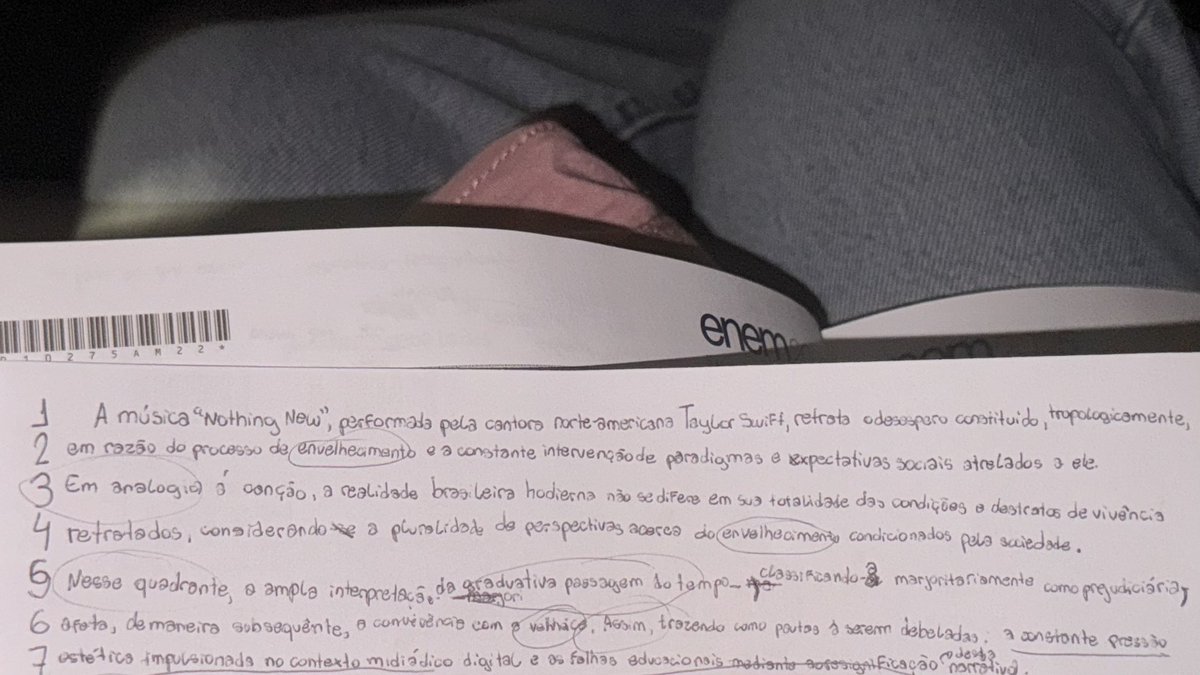 010275AM22*
enem
1 A música "Nothing New", performada pela cantora norte-americana Taylor Swift, retrata o desespero constituido, tropologicamente,
2 em razão do processo de envelhecimento e a constante intervenção de paradigmas e expectativas sociais atrelados a ele.
3 Em analogia á canção, a realidade brasileira hodierna não se difere em sua totalidade das condições e destratos de vivência
4 retratados, considerando-se a pluralidade de perspectivas acerca do envelhecimento condicionados pela sociedade.
5 Nesse quadrante, a ampla interpretação da graduativa passagem do tempo classificando-a marjoritariamente como prejudiciária,
6 afeta, de maneira subsequênte, a convivência com a velhice. Assim, trazendo como pautas à serem debeladas: a constante pressão
7 estética impulsionada no contexto midiádico digital e as falhas educacionais mediante a desta narrativa.